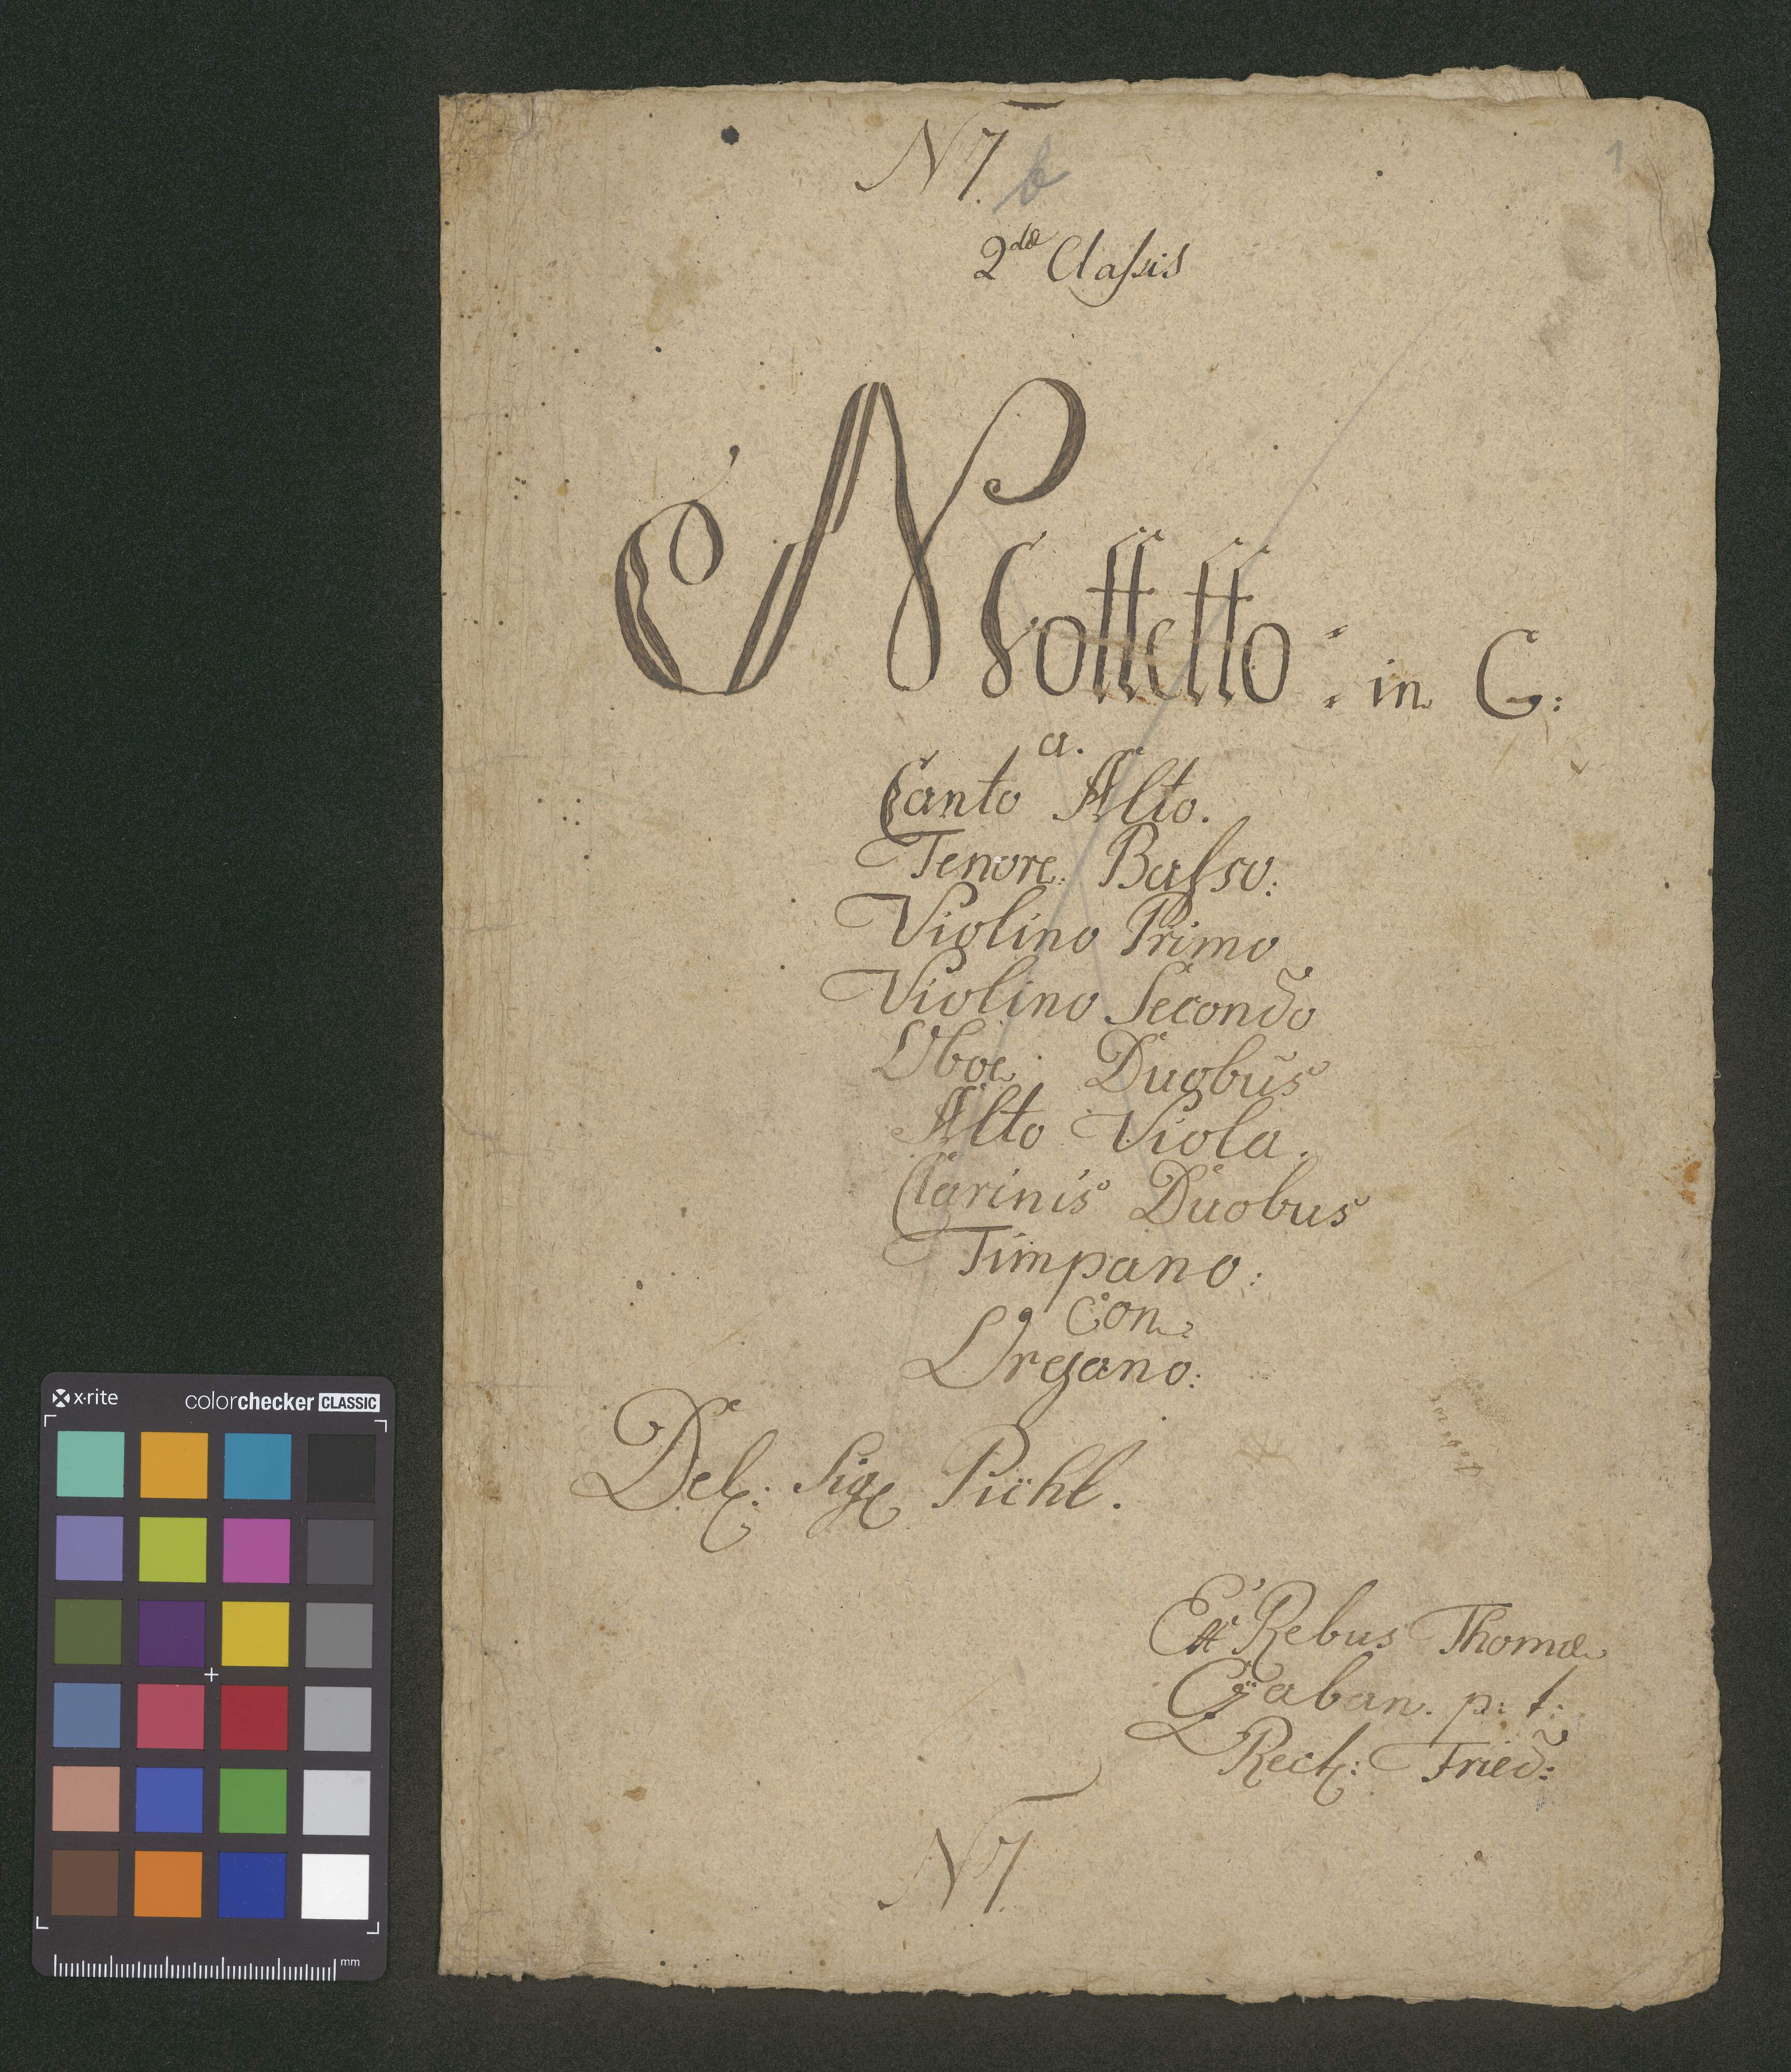 N 7. b
1
2dæ Classis
Mottetto: in C:
a.
Canto Alto.
Tenore: Basso:
Violino Primo
Violino Secondo
Oboe: Duobus
Alto Viola.
Clarinis Duobus
Timpano:
con
Oregano:
Del: Sig Pichl.
Ex Rebus Thomæ
Gaban. p: t:
Rect: Fried:
N 7.
x-rite
colorchecker CLASSIC
mm